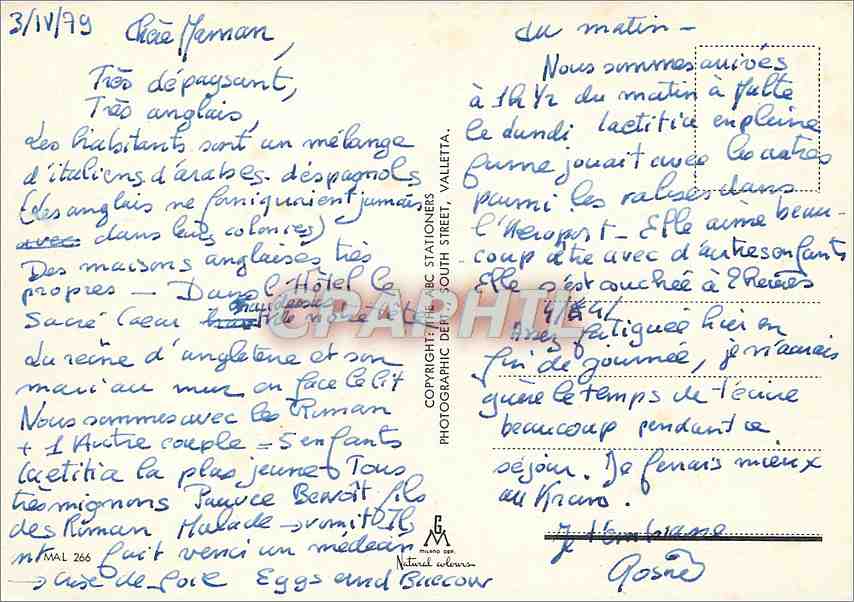 3/IV/79
Chère Maman,
Très dépaysant,
Très anglais,
Les habitants sont un mélange
d'italiens d'arabes. d'éspagnols
(Les anglais ne forniquaient jamais
avec dans leurs colonies)
Des maisons anglaises très
propres — Dans l'Hôtel le
Sacré Coeur au dessus
de notre tête
La reine d'angleterre et son
mari au mur en face le lit
Nous sommes avec les Roman
+ 1 Autre couple = 5 enfants
Laetitia la plus jeune Tous
très mignons Pauvre Benoît fils
des Roman Malade → vomit Ils
nt fait venir un médecin
→ crise de foie Eggs and Baccon
MAL 266
COPYRIGHT: THE ABC STATIONERS
PHOTOGRAPHIC DEPT. SOUTH STREET, VALLETTA.
GM
MILANO DEP.
Natural colours
CPAPHIL
du matin —
Nous sommes arrivés
à 1h 1/2 du matin à Malte
le Lundi Laetitia en pleine
forme jouait avec les autres
parmi les valises dans
l'Aeroport — Elle aime beau-
coup être avec d'autres enfants
Elle s'est couchée à 2 heures
Assez fatiguée hier en
fin de journée, je n'aurais
guère le temps de t'écrire
beaucoup pendant ce
séjour. Je ferais mieux
au Kram.
Je t'embrasse